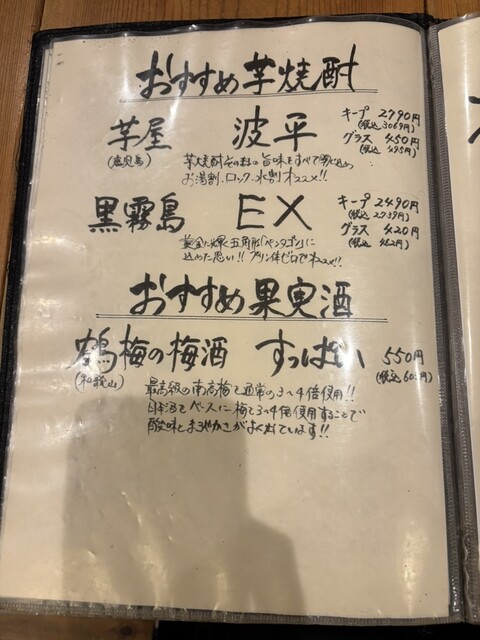 おすすめ芋焼酎
芋屋 波平 キープ 2790円
(税込 3069円)
(鹿児島) グラス 450円
(税込 495円)
芋焼酎その料の旨味をすべて閉じ込め
お湯割、ロック、水割オススメ!!
黒霧島 EX キープ 2490円
(税込 2739円)
グラス 420円
(税込 462円)
黄金に輝く五角形「ペンタゴン」に
込めた思い!! プリン体ゼロでオススメ!!
おすすめ果実酒
鶴梅の梅酒 すっぱい 550円
(和歌山) (税込 605円)
最高級の南高梅を通常の3~4倍使用!!
日本酒をベースに梅を3~4倍使用することで
酸味とまろやかさがよく出ています!!